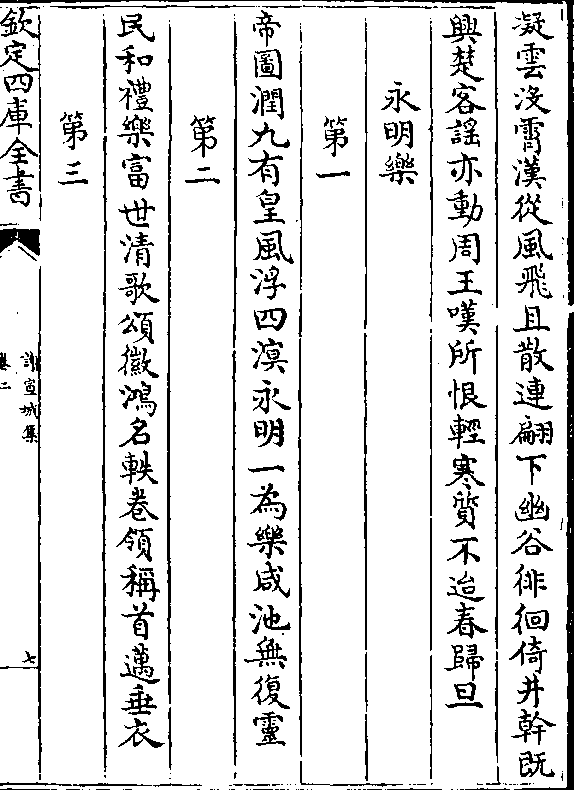 凝雲没霄漢從風飛且散連翩下幽谷徘徊倚井幹既
興楚客謡亦動周王嘆所恨輕寒質不迨春歸旦
永明樂
第一
帝圖潤九有皇風浮四溟永明一為樂咸池無復靈
第二
民和禮樂富世清歌頌徽鴻名軼卷領稱首邁垂衣
第三
欽定四庫全書
謝宣城集
卷二
七